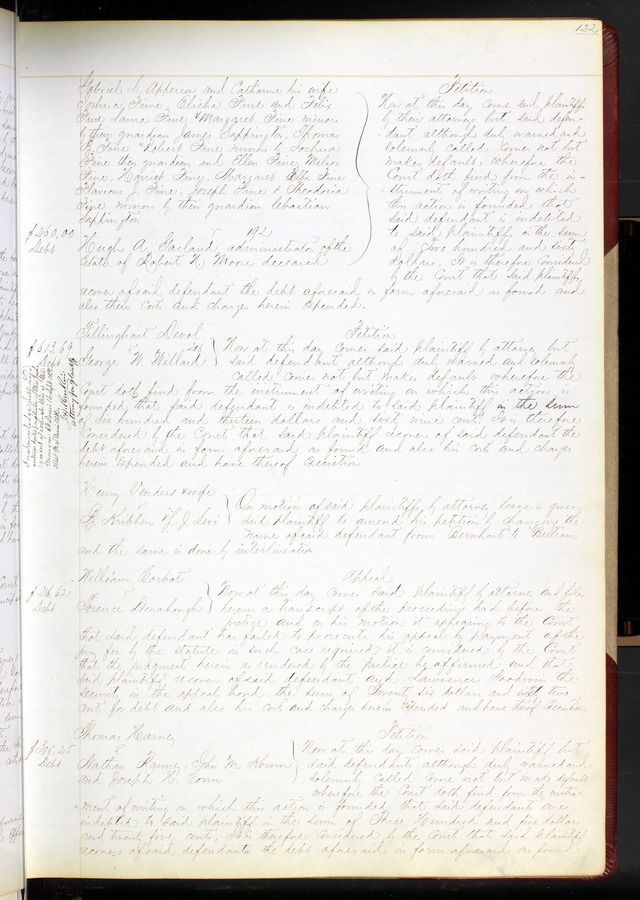 122
Gabriel L. Apperson and Catharine his wife
Joshua Fine, Elisha Fine and Felix
Fine Laura Fine, & Margaret Fine minors
by their guardian James Sappington, Thomas
Fine Robert Fine minors by Joshua
Fine their guardian and Ellen Fine,
Fine, Harriet Fine, Margaret Fine
J. Fine, Joseph Fine &
Fine minors by their guardian Sebastian
Sappington
192
Hugh A. Garland, administrator of the
Estate of Robert N. Moore deceased
$260.00
Debt
Petition
Now at this day come said plaintiffs
by their attorney but said defen-
dant although duly warned and
solemnly called comes not but
makes default, wherefore the
Court doth find from the in-
strument of writing on which
this action is founded that
said defendant is indebted
to said plaintiffs in the sum
of Two hundred and sixty
dollars. It is therefore considered
by the Court that said plaintiffs
recover of said defendant the debt aforesaid in form aforesaid as found and
also their costs and charges herein expended.
Tillinghast Devol
George W. Willard
$613.69
Debt
Petition
Now at this day comes said plaintiff by attorney but
said defendant although duly warned and solemnly
called comes not but makes default wherefore the
Court doth find from the instrument of writing on which this action is
founded that said defendant is indebted to said plaintiff in the sum
of Six hundred and thirteen dollars and sixty nine cents. It is therefore
Considered by the Court that said plaintiff recover of said defendant the
debt aforesaid in form aforesaid as found and also his costs and charges
herein expended and have thereof execution
Henry Venders & wife
B. Kribben & J. Levi
On motion of said plaintiffs by attorney leave is given
said plaintiff to amend his petition by changing the
name of said defendant from Bernhart to Bertram
and the same is done by interlineation
William Corbat
Terence Donahough
$26.62
Debt
Appeal
Now at this day comes said plaintiff by attorney and files
herein a transcript of the proceedings had before the
justice and on his motion it appearing to the Court
that said defendant has failed to prosecute his appeal by payment of the
jury fee by the statute in such case required it is considered by the Court
that the judgment herein as rendered by the justice be affirmed and that
said plaintiff recover of said defendant and Lawrence Goodwin the
security in the appeal bond the sum of Twenty six dollars and sixty two
cents for debt and also his costs and charges herein expended and have thereof Execution
Thomas Harney
Nathan Ranney, John M.
and Joseph H. Conn
$305.25
Debt
Petition
Now at this day comes said plaintiff but
said defendants although duly warned and
solemnly called come not but make default
wherefore the Court doth find from the instru-
ment of writing on which this action is founded that said defendants are
indebted to said plaintiff in the sum of Three Hundred and five dollars
and twenty five cents, it is therefore considered by the Court that said plaintiff
recover of said defendants the debt aforesaid in form aforesaid as found